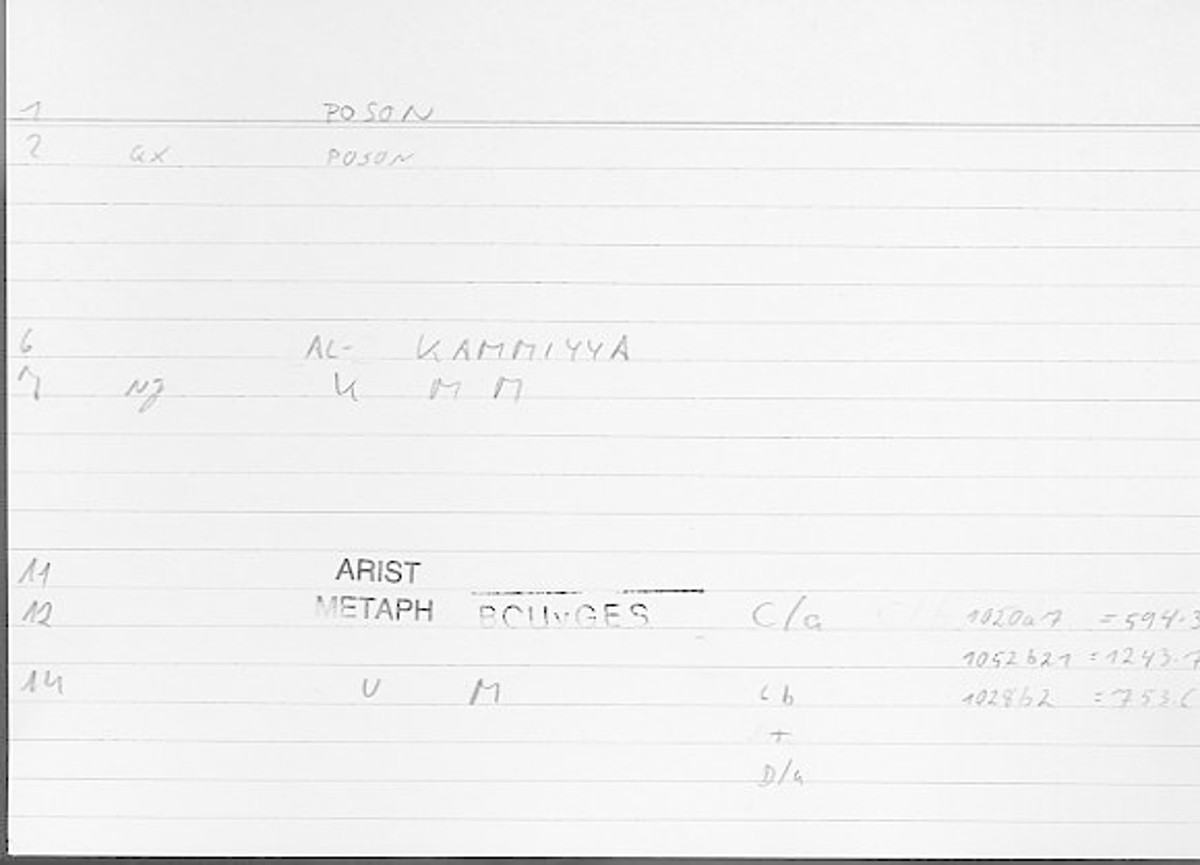 1 POSON
2 ax POSON
6 AL- KAMMIYYA
7 Nz K M M
11 ARIST
12 METAPH BOUYGES C/a 1020a7 = 594.3
1052b21 = 1243.7
14 U M C b 1028b2 = 753.
+
D/a